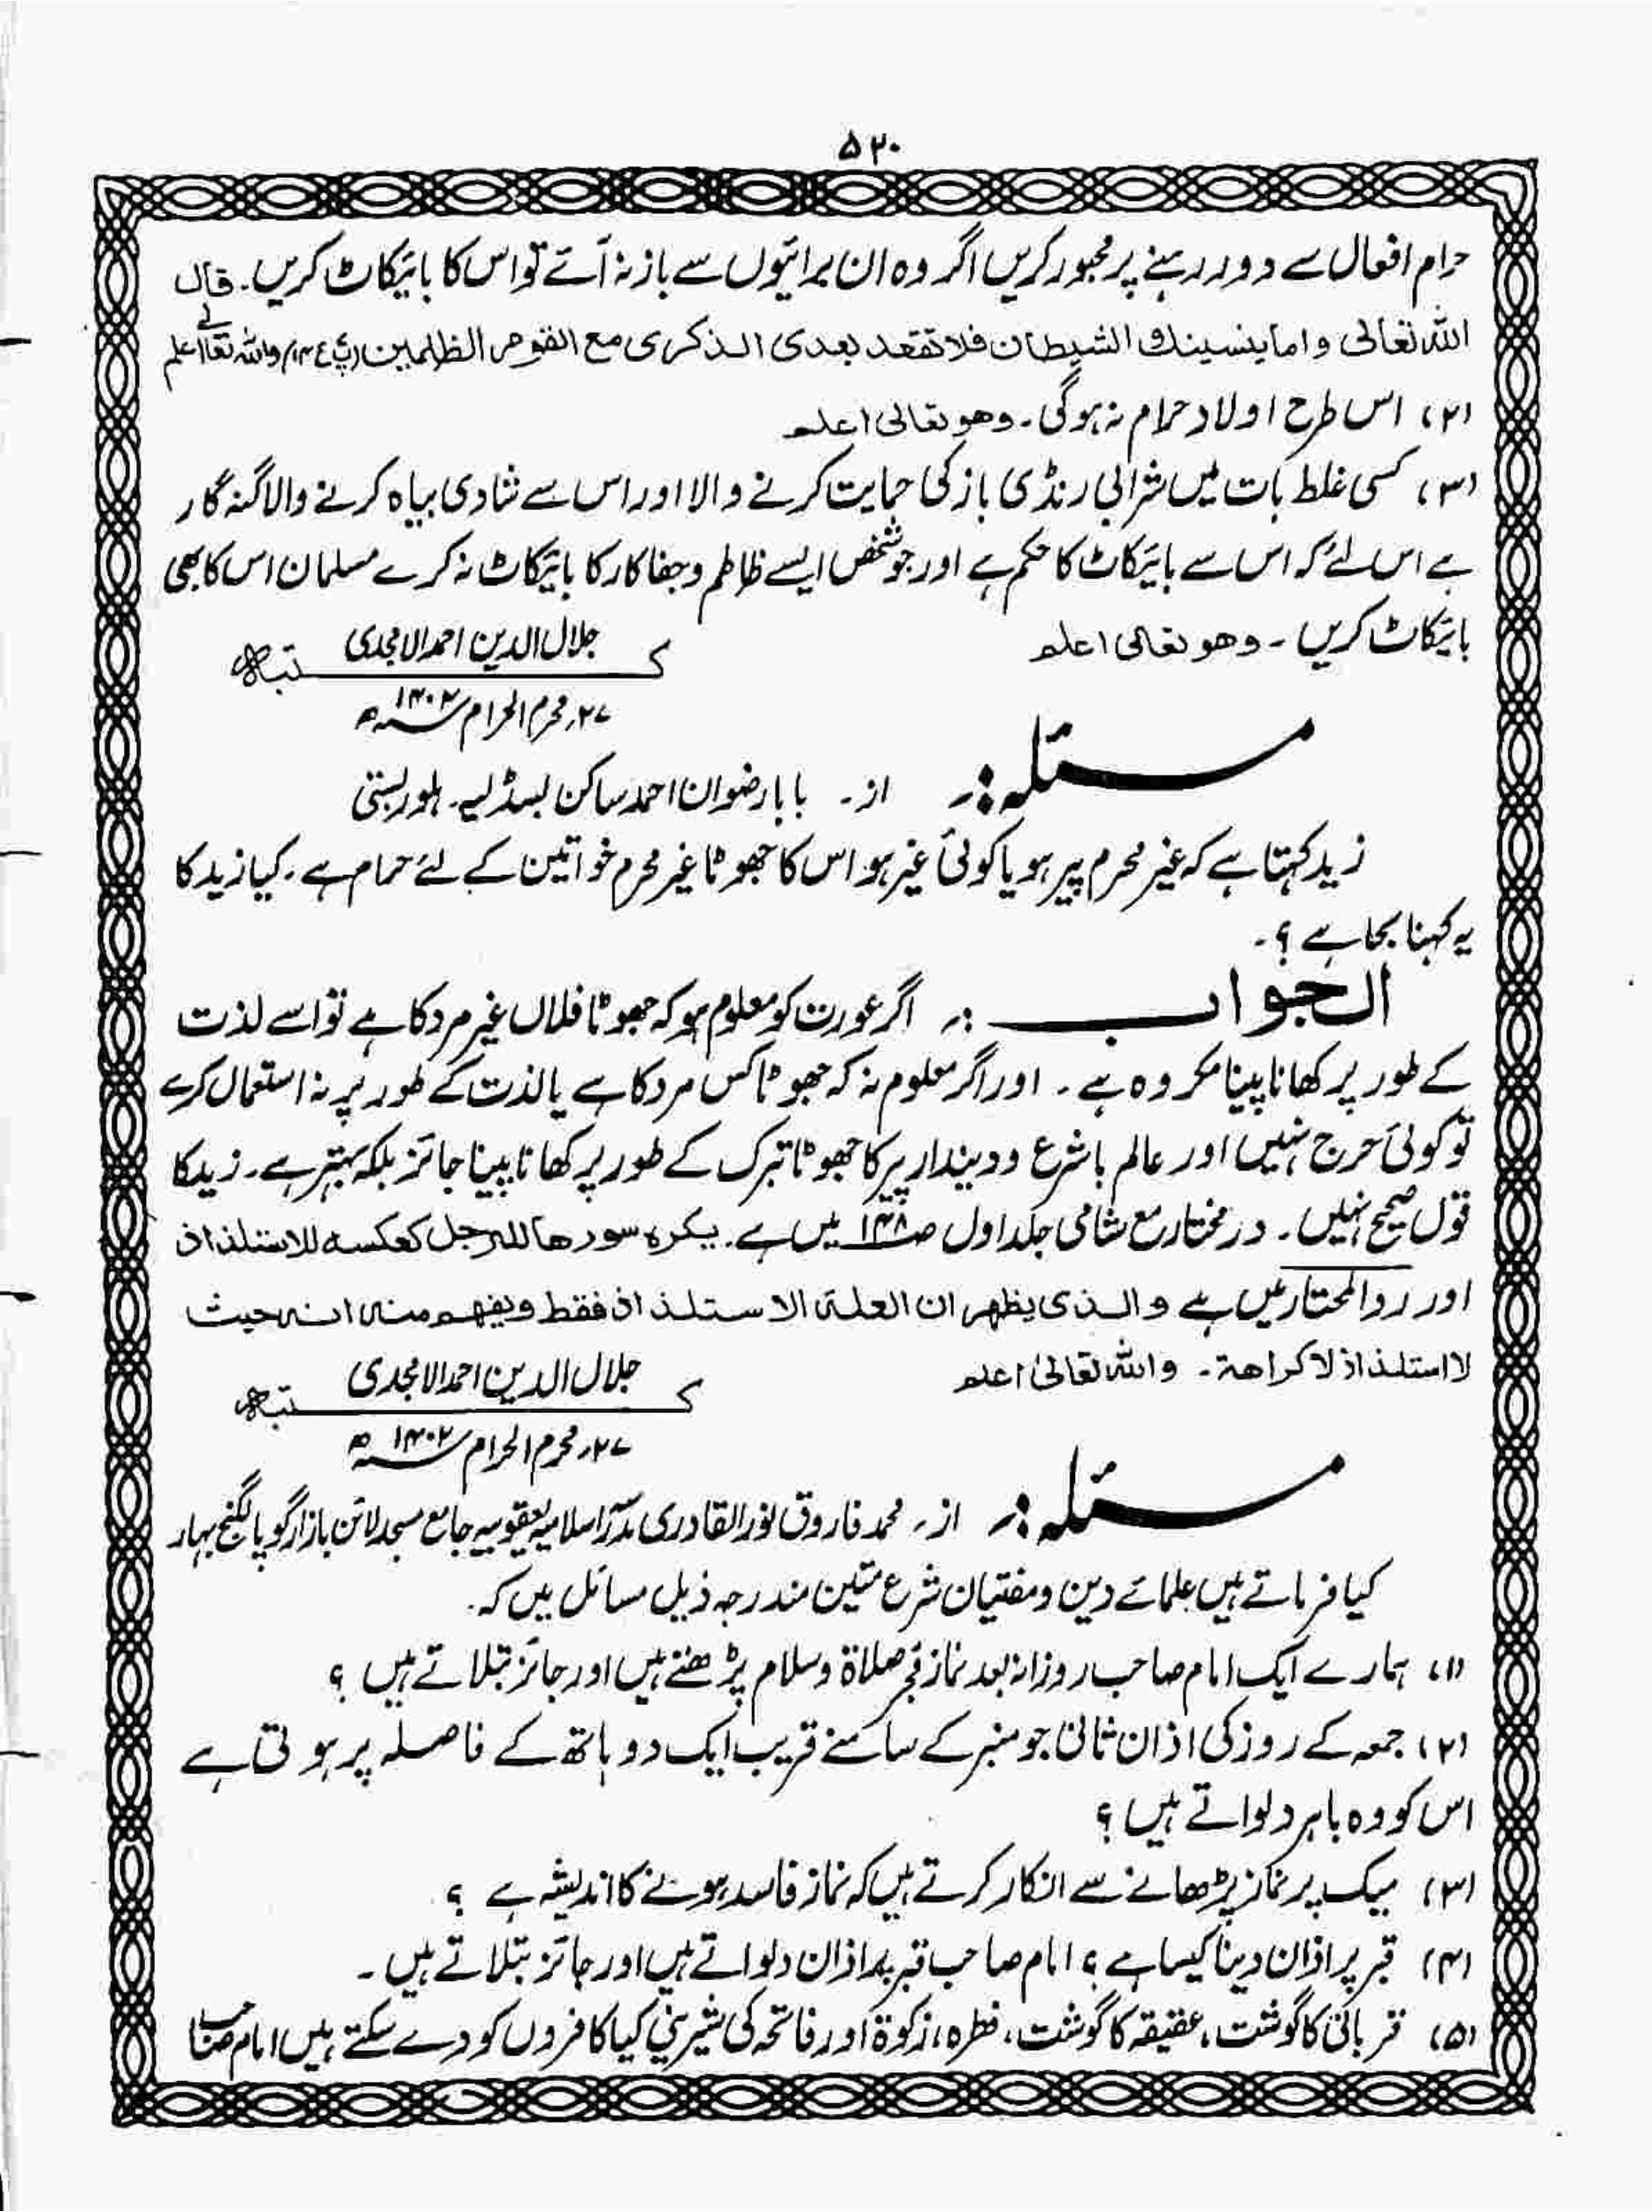 ۵۲۰
حرام افعال سے دور رہنے پر مجبور کریں اگر وہ ان برائیوں سے باز نہ آئے تو اس کا بائیکاٹ کریں۔ قال
اللہ تعالیٰ واما ینسینك الشیطان فلا تقعد بعدی الذکری مع القوم الظلمین (پ۷ ع۱۴) واللہ تعالیٰ اعلم
(۲) اس طرح اولاد حرام نہ ہوگی۔ وھو تعالیٰ اعلم
(۳) کسی غلط بات میں شرابی رنڈی باز کی حمایت کرنے والا اور اس سے شادی بیاہ کرنے والا گنہ گار
ہے اس لئے کہ اس سے بائیکاٹ کا حکم ہے اور جو شخص ایسے ظالم و جفا کار کا بائیکاٹ نہ کرے مسلمان اس کا بھی
بائیکاٹ کریں۔ وھو تعالیٰ اعلم
کتبہ جلال الدین احمد الامجدی
۲۷؍ محرم الحرام ۱۴۰۲ھ
مسئلہ:۔ از۔ بابا رضوان احمد ساکن بسڈلیہ۔ بلور بستی
زید کہتا ہے کہ غیر محرم پیر ہو یا کوئی غیر ہو اس کا جھوٹا غیر محرم خواتین کے لئے حرام ہے۔ کیا زید کا
یہ کہنا بجا ہے ؟۔
الجواب:۔ اگر عورت کو معلوم ہو کہ جھوٹا فلاں غیر مرد کا ہے تو اسے لذت
کے طور پر کھانا پینا مکروہ ہے۔ اور اگر معلوم نہ کہ جھوٹا کس مرد کا ہے یا لذت کے طور پر نہ استعمال کرے
تو کوئی حرج نہیں اور عالم باشرع و دیندار پیر کا جھوٹا تبرک کے طور پر کھانا پینا جائز بلکہ بہتر ہے۔ زید کا
قول صحیح نہیں۔ درمختار مع شامی جلد اول ص۱۴۸ میں ہے۔ یکرہ سورھا للرجل کعکسہ للاستلذاذ
اور ردالمحتار میں ہے والذی یظھر ان العلۃ الاستلذاذ فقط ویفھم منہ انہ حیث
لا استلذاذ لا کراھۃ۔ واللہ تعالیٰ اعلم
کتبہ جلال الدین احمد الامجدی
۲۷؍ محرم الحرام ۱۴۰۲ھ
مسئلہ:۔ از۔ محمد فاروق نور القادری مدرسہ اسلامیہ یعقوبیہ جامع مسجد لائن بازار گوپالگنج بہار
کیا فرماتے ہیں علمائے دین و مفتیان شرع متین مندرجہ ذیل مسائل میں کہ۔
(۱) ہمارے ایک امام صاحب روزانہ بعد نماز فجر صلاۃ وسلام پڑھتے ہیں اور جائز بتلاتے ہیں ؟
(۲) جمعہ کے روز کی اذان ثانی جو منبر کے سامنے قریب ایک دو ہاتھ کے فاصلہ پر ہوتی ہے
اس کو وہ باہر دلواتے ہیں ؟
(۳) میک پر نماز پڑھانے سے انکار کرتے ہیں کہ نماز فاسد ہونے کا اندیشہ ہے ؟
(۴) قبر پر اذان دینا کیسا ہے ؟ امام صاحب قبر پر اذان دلواتے ہیں اور جائز بتلاتے ہیں۔
(۵) قربانی کا گوشت، عقیقہ کا گوشت، فطرہ، زکوۃ اور فاتحہ کی شیرینی کیا کافروں کو دے سکتے ہیں امام صاحب